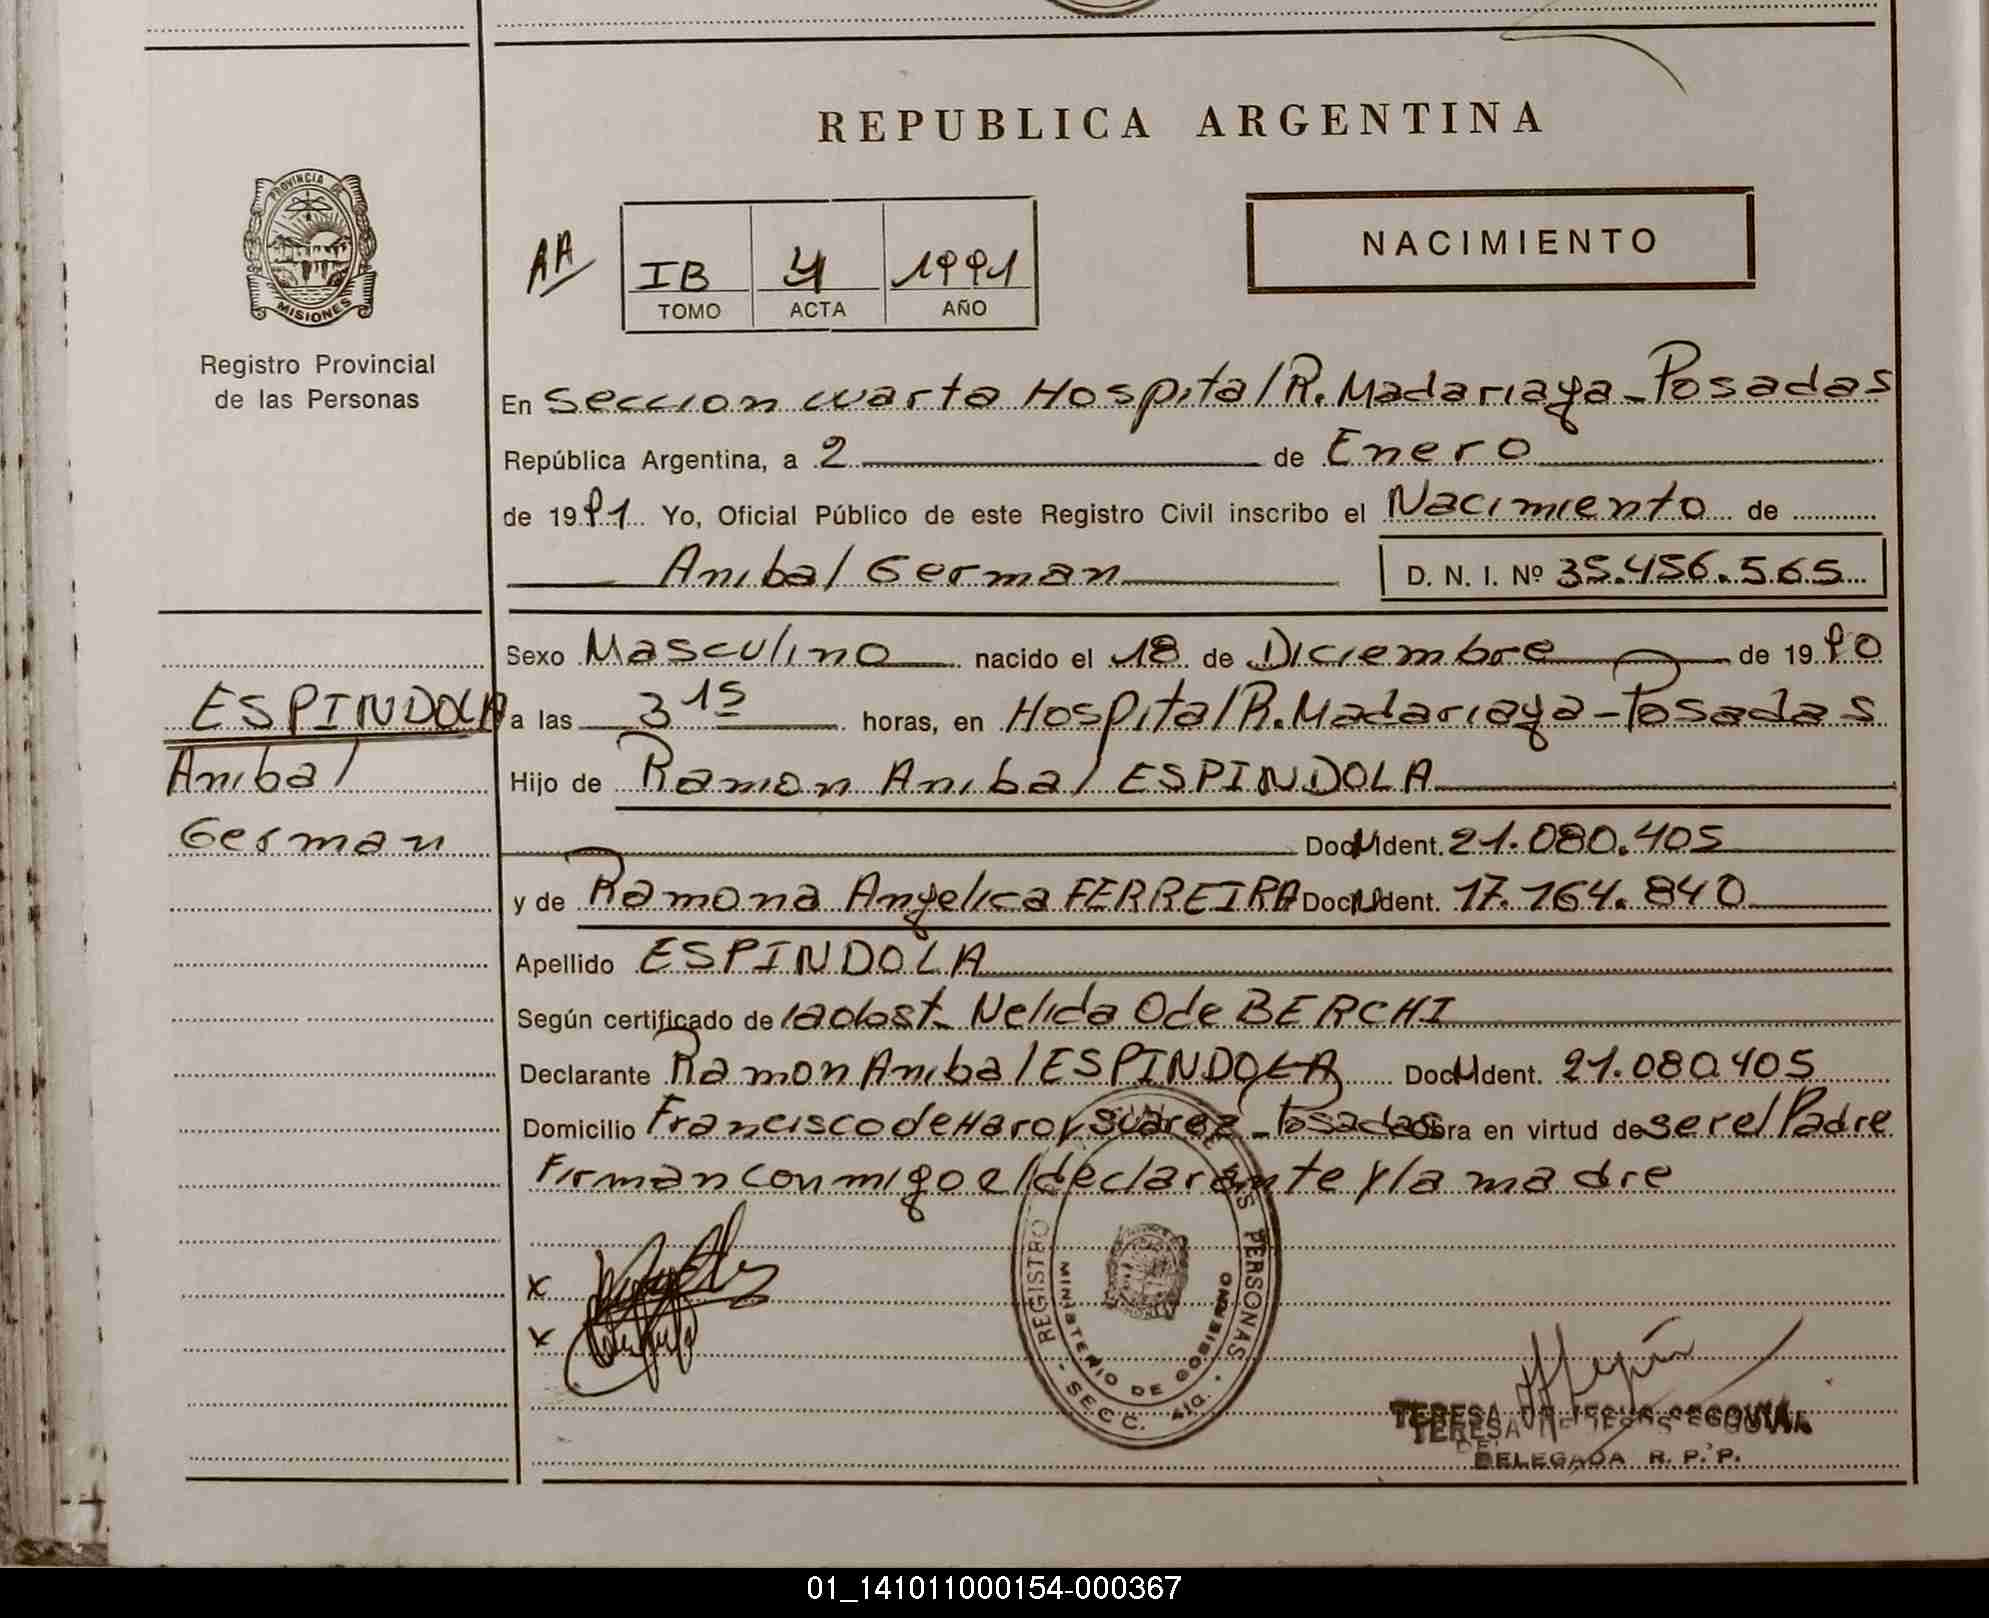 REPUBLICA ARGENTINA
PROVINCIA DE
MISIONES
Registro Provincial
de las Personas
AA
IB 4 1991
TOMO ACTA AÑO
NACIMIENTO
En Seccion cuarta Hospital R. Madariaga - Posadas
República Argentina, a 2 de Enero
de 1991 Yo, Oficial Público de este Registro Civil inscribo el Nacimiento de
Anibal German D. N. I. Nº 35.456.565
Sexo Masculino nacido el 18 de Diciembre de 1990
ESPINDOLA
Anibal
German
a las 3 15 horas, en Hospital R. Madariaga - Posadas
Hijo de Ramon Anibal ESPINDOLA
Doc. Ident. 21.080.405
y de Ramona Angelica FERREIRA Doc. Ident. 17.764.840
Apellido ESPINDOLA
Según certificado de la obst. Nelida Ode BERCHI
Declarante Ramon Anibal ESPINDOLA Doc. Ident. 21.080.405
Domicilio Francisco de Haro y Suarez - Posadas Obra en virtud de ser el Padre
Firman conmigo el declarante y la madre
x
x
REGISTRO PERSONAS
MINISTERIO DE GOBIERNO
- SECC. 4ta. -
TERESA DE JESUS SEGOVIA
DELEGADA R. P. P.
01_141011000154-000367